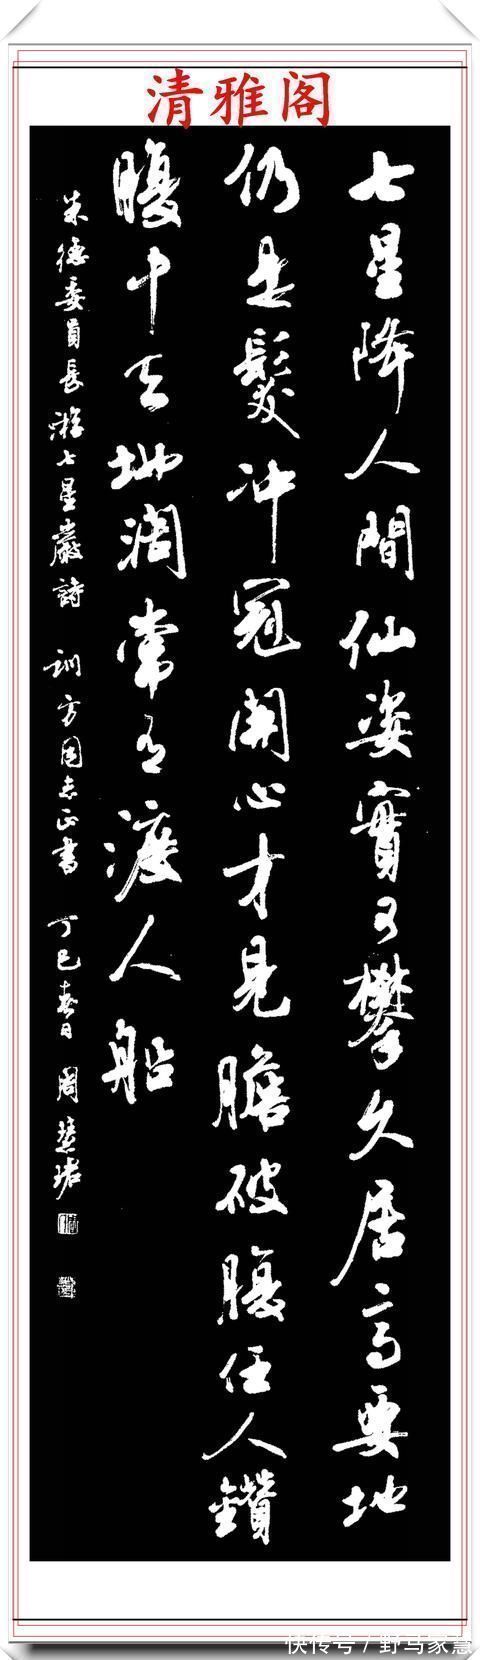 清雅阁
七星降人間仙姿實可攀久居高要地
仍是髮冲冠開心才見膽破腹任人鑽
腹中天地闊常有渡人船
朱德委員長游七星巖詩 訓方同志正書 丁巳春日 周慧珺
快传号/野马家慧